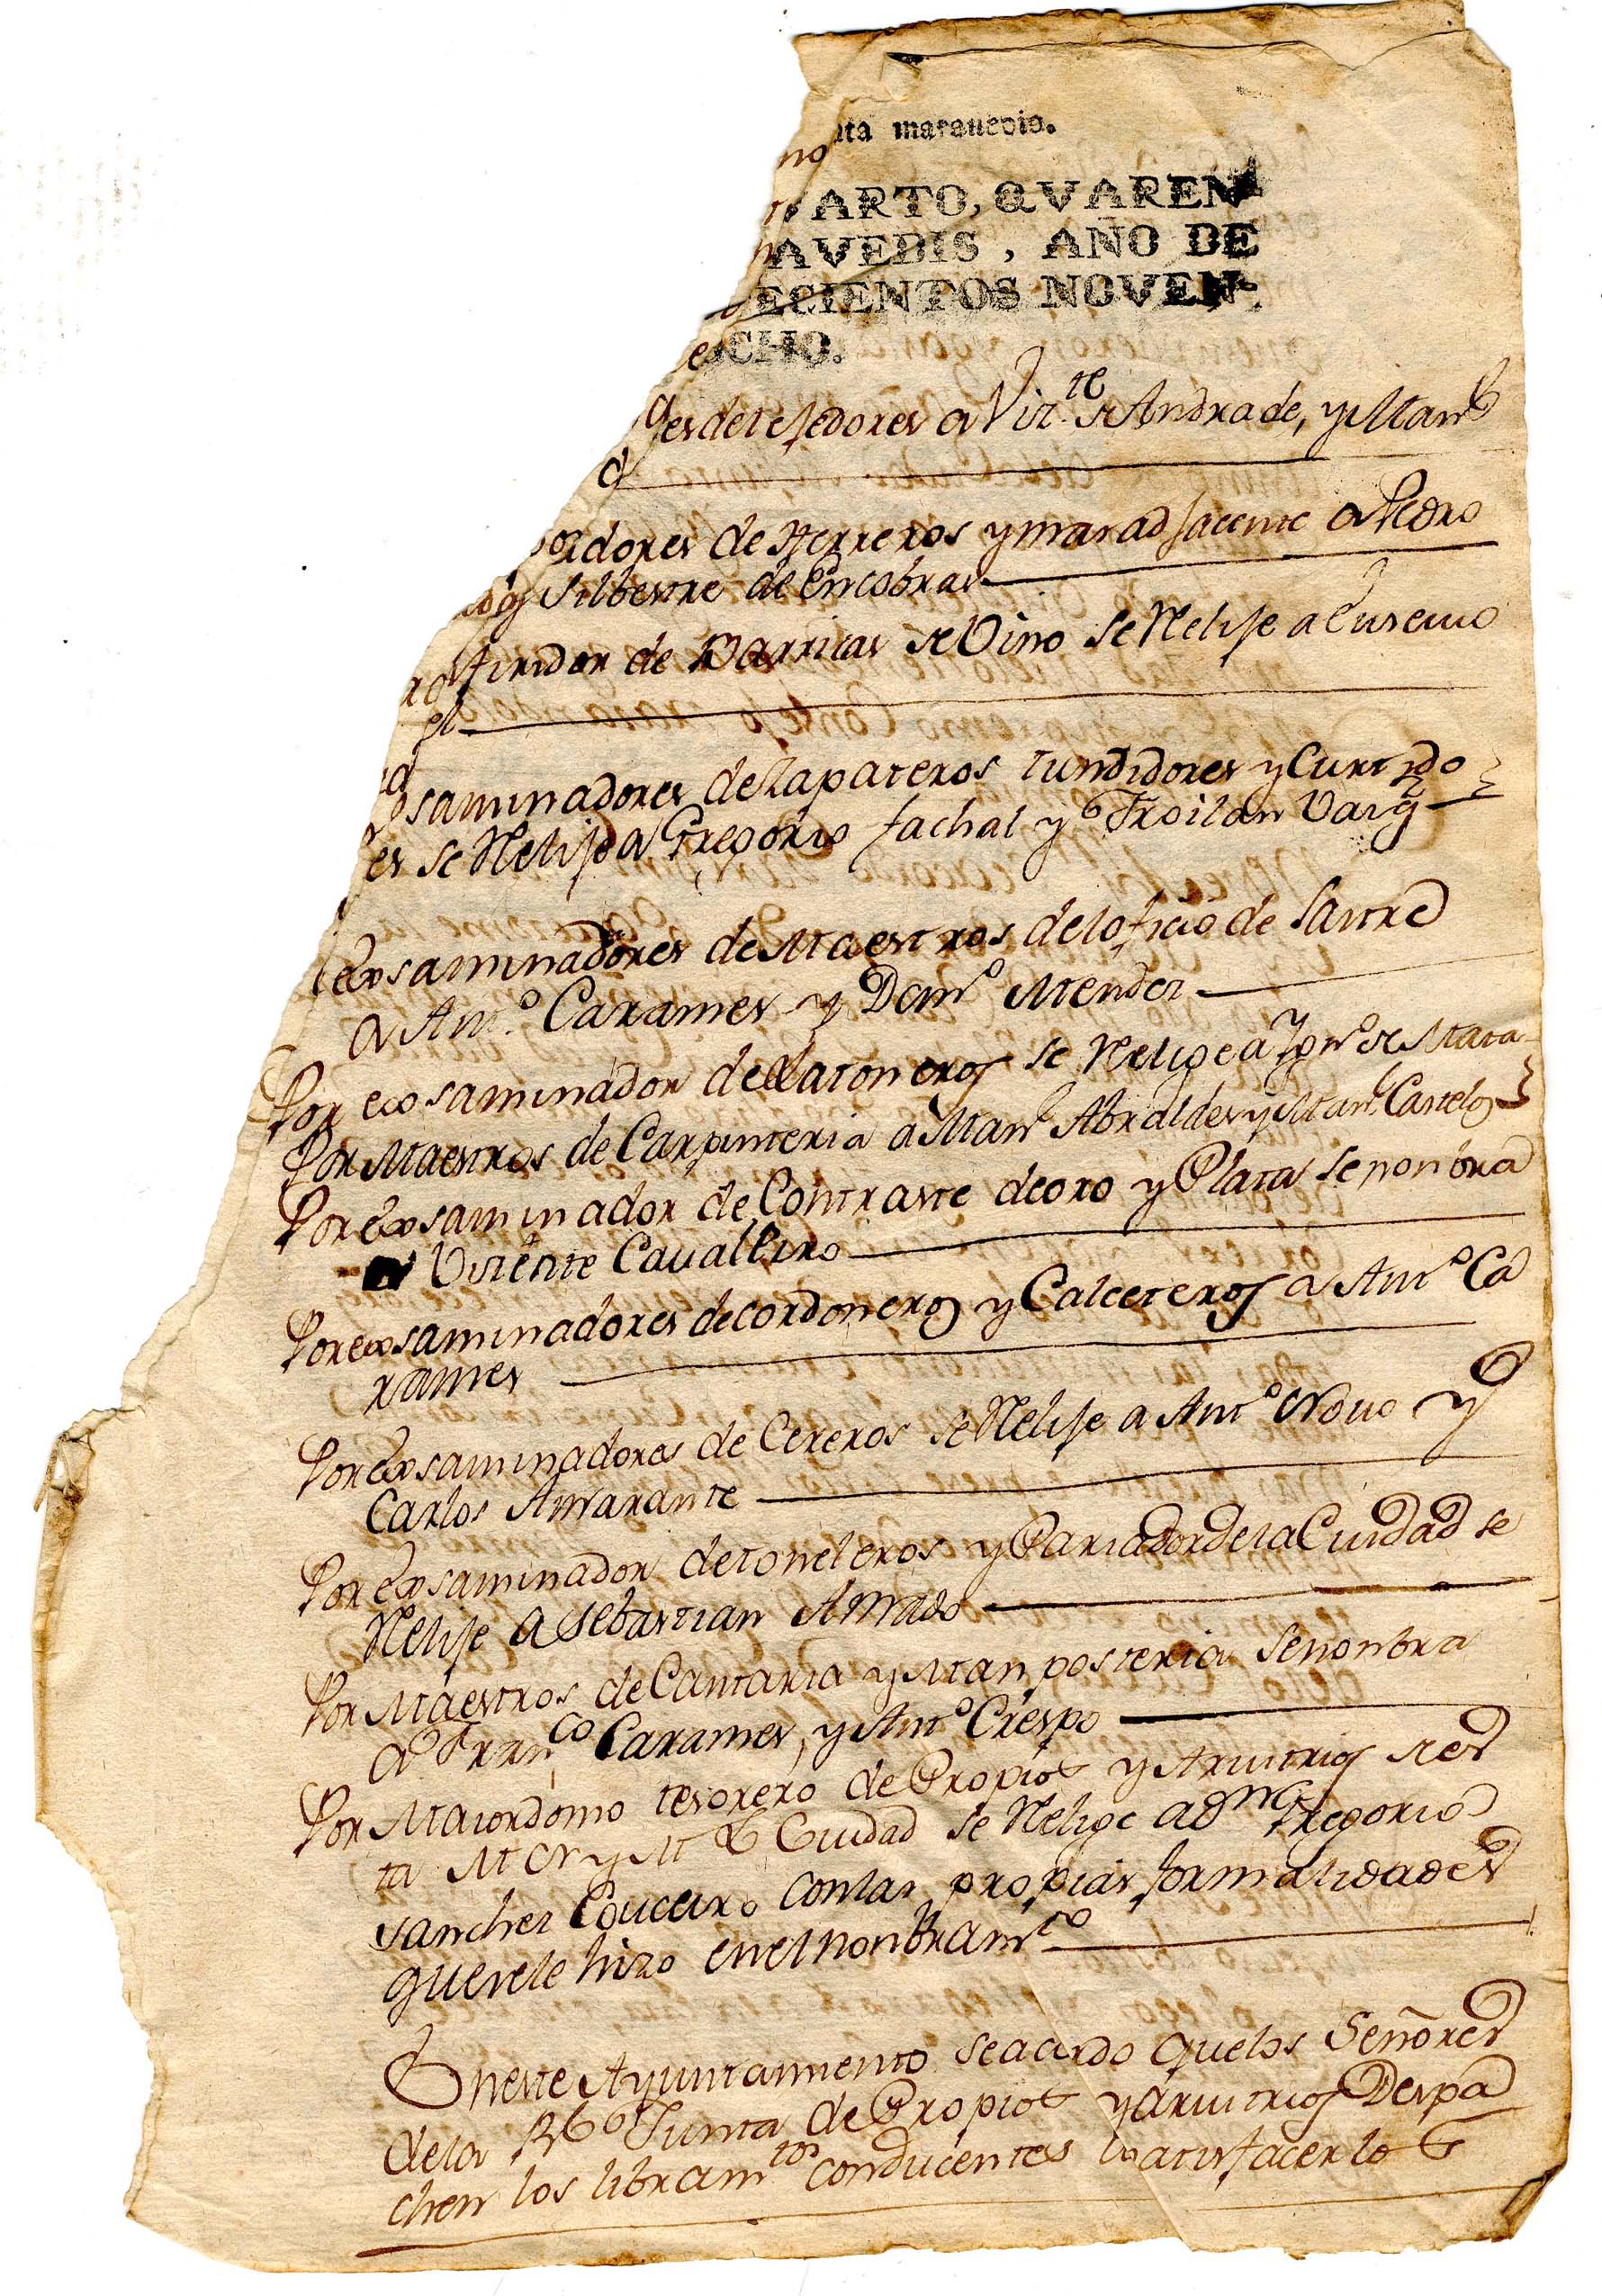 nta marauedis.
no
ARTO, QVAREN
AVEDIS, AÑO DE
ECIENTOS NOVEN-
OCHO.
des detejedores a Viz.te de Andrade, y Man.l
adores de Herreros y mas adjacente a Pedro
Silbestre de Encobras
de Barricas de Vino se Relije a Eusevio
el
saminadores de Zapateros tundidores y Curtido
es se Relije a Gregorio fachal y Froilan Varg
exsaminadores de Maestros del oficio de Sastre
a Ant.o Carames y Dom.o Mendez
Por exsaminador de Latoneros se Relige a Ign.o de Mata
Por Maestros de Carpinteria a Man.l Abraldes y Man.l Castelo
Por Exsaminador de Contraste de oro y Plata se nonbra
a Visente Cavalleiro
Por exsaminadores de cordoneros y Calceteros a Ant.o Ca
rames
Por Exsaminadores de Cereros se Relije a Ant.o Novo y
Carlos Amarante
Por Exsaminador de toneleros y Pariador de la Ciudad se
Relije a Sebastian Amado
Por Maestros de Cantaria y Manposteria se nonbra
a Fran.co Carames, y Ant.o Crespo
Por Maiordomo tesorero de Propios y Arvitrios de es
ta M N y M L Ciudad se Relige a Dn Gregorio
Sanchez Couceiro con las propias formalidades
que se le hizo en el nonbram.to
En este Ayuntamiento se acordo que los Señores
de la Rl Junta de Propios y arvitrios Despa
chen los libram.tos conducentes a satisfacer los